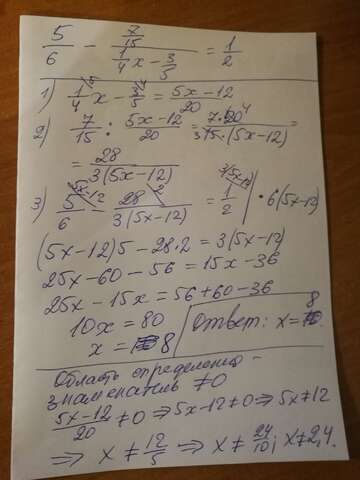 5/6 − (7/15)/(1/4 x − 3/5) = 1/2
1) 1/4 x − 3/5 = (5x−12)/20
2) 7/15 : (5x−12)/20 = 7·20 4/(3 15·(5x−12)) =
= 28/(3(5x−12))
3) 5/6 − 28/(3(5x−12)) = 1/2 | · 6(5x−12)
(5x−12)5 − 28·2 = 3(5x−12)
25x−60−56 = 15x−36
25x−15x = 56+60−36
10x = 80
x = 8
Ответ: x = 8
Область определения –
знаменатель ≠0
(5x−12)/20 ≠0 ⇒ 5x−12≠0 ⇒ 5x≠12
⇒ x ≠ 12/5 ⇒ x ≠ 24/10; x≠2,4.